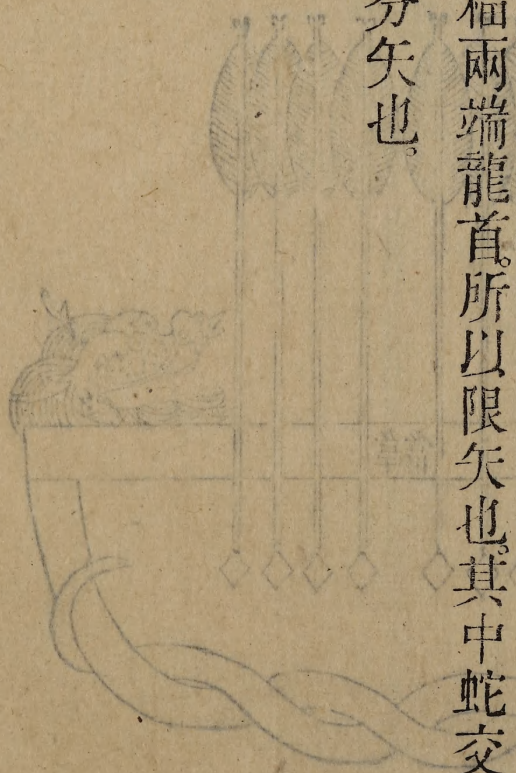 楅兩端龍首。所以限矢也。其中蛇交
分矢也。